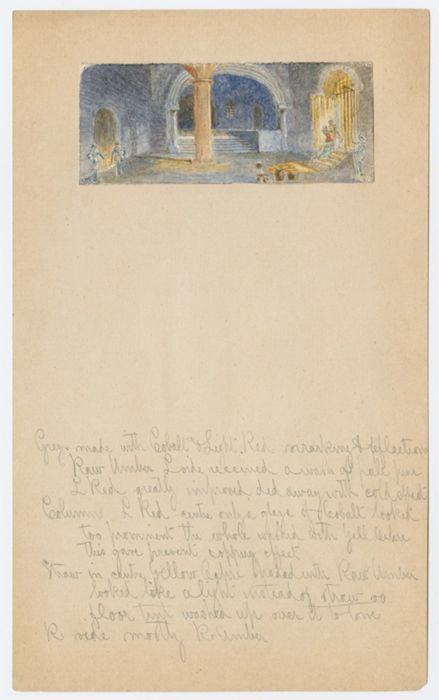 Greys made with Cobalt & Light Red marking & reflections
Raw Umber L side received a wash of pale pure
L Red greatly improved did away with cold effect
Columns L Red centre only a glaze of Cobalt looked
too prominent the whole washed with Yell Ochre
this gave present coppery effect
Straw in centre Yellow Ochre shaded with Raw Umber
looked like a light instead of straw so
floor tint washed up over it to tone
R side mostly R. Umber